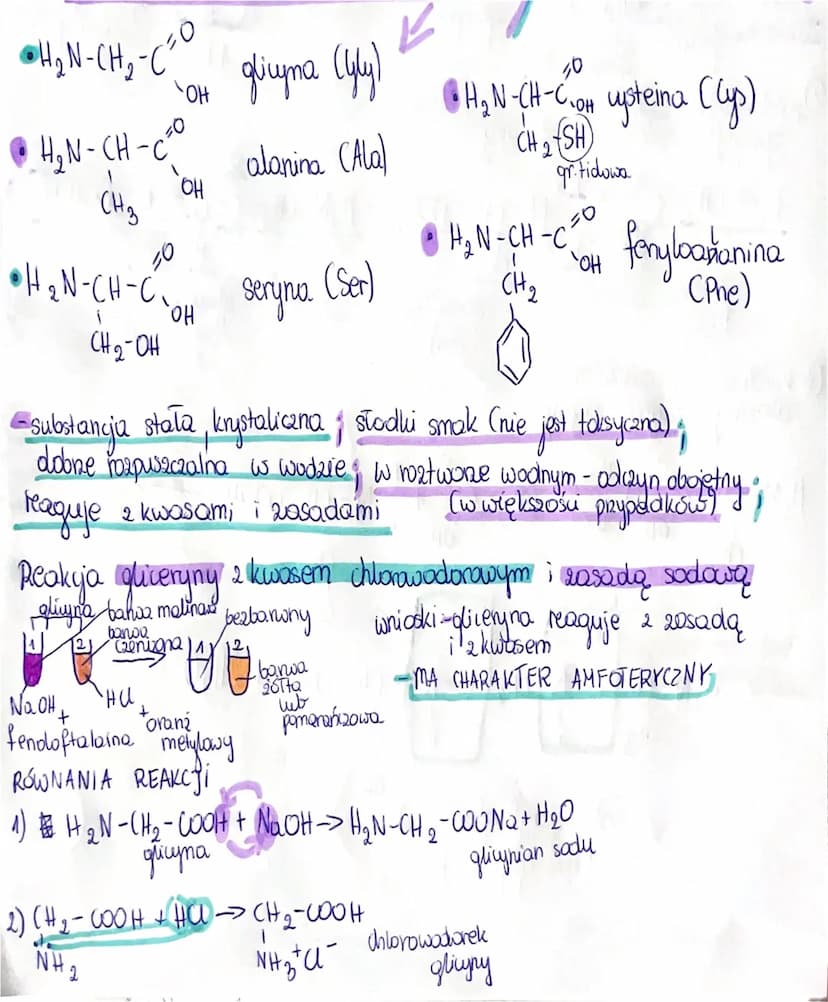 H₂N-CH₂-C=O
OH
glicyna (Gly)
H₂N-CH-C=O
OH
CH₃
alanina (Ala)
H₂N-CH-C=O
OH
CH₂-OH
seryna (Ser)
H₂N-CH-C=O
OH
CH₂-SH
gr. tidowa
cysteina (Cys)
H₂N-CH-C=O
OH
CH₂
fenyloalanina
(Phe)
-substancja stała, krystaliczna; słodki smak (nie jest toksyczna);
dobrze rozpuszczalna w wodzie; w roztworze wodnym - odczyn obojętny;
reaguje z kwasami i zasadami (w większości przypadków)
Reakcja gliceryny z kwasem chlorowodorowym i zasadą sodową
glicyna
barwa malinowa
barwa
czerwona
bezbarwny
1 2 1 2
barwa
żółta
lub
pomarańczowa
NaOH
+
fendoftaleina
HCl
+
oranż
metylowy
wnioski:-gliceryna reaguje z zasadą
i z kwasem
-MA CHARAKTER AMFOTERYCZNY
RÓWNANIA REAKCJI
1) H₂N-CH₂-COOH + NaOH -> H₂N-CH₂-COONa + H₂O
glicyna
glicynian sodu
2) CH₂-COOH + HCl -> CH₂-COOH
NH₂
NH₃⁺Cl⁻
chlorowodorek
glicyny